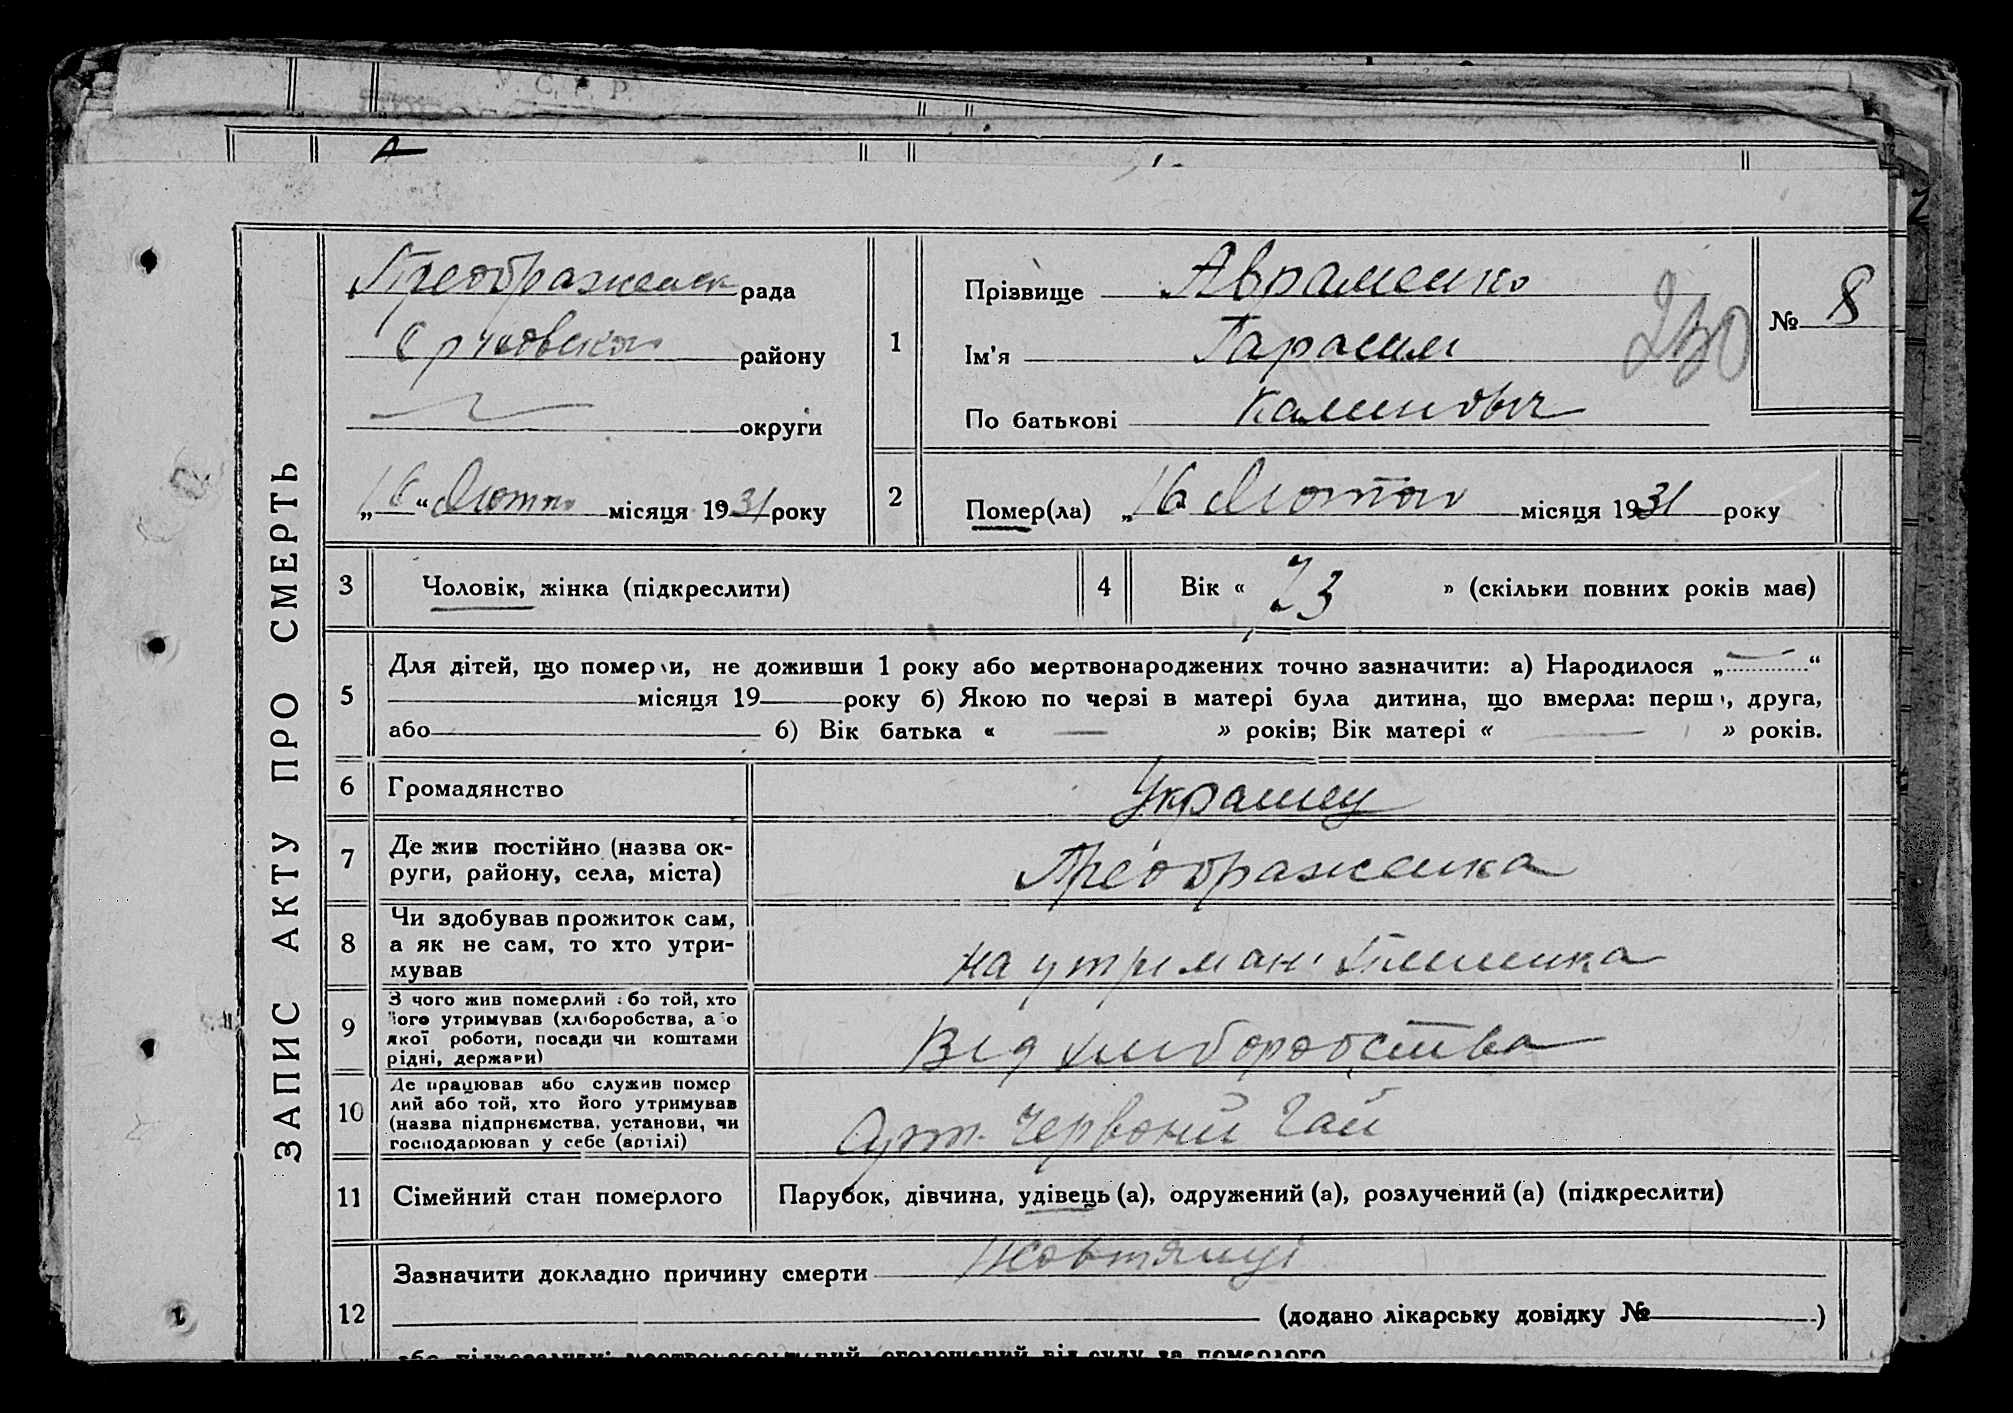 У. С. Р. Р.
ЗАПИС АКТУ ПРО СМЕРТЬ
Преображенск рада
району
округи
„16“ Лютого місяця 1931 року
1
Прізвище Авраменко
Ім'я Гарасим
По батькові Калинович
№ 8
2
Помер(ла) „16 Лютого місяця 1931 року
3 Чоловік, жінка (підкреслити)
4 Вік « 73 » (скільки повних років має)
5
Для дітей, що померли, не доживши 1 року або мертвонароджених точно зазначити: а) Народилося „ “
місяця 19 року б) Якою по черзі в матері була дитина, що вмерла: перша, друга,
або б) Вік батька « — » років; Вік матері « — » років.
6 Громадянство Украинец
7 Де жив постійно (назва ок-
руги, району, села, міста) Преображенка
8 Чи здобував прожиток сам,
а як не сам, то хто утри-
мував
на утримані племинника
9 З чого жив померлий або той, хто
його утримував (хліборобства, або
якої роботи, посади чи коштами
рідні, держави)
Від хлиборобства
10 Де працював або служив помер
лий або той, хто його утримував
(назва підпрнємства, установи, чи
господарював у себе (артілі)
Арт. Червоний Гай
11 Сімейний стан померлого Парубок, дівчина, удівець (а), одружений (а), розлучений (а) (підкреслити)
12
Зазначити докладно причину смерти Жовтяниці
(додано лікарську довідку № )